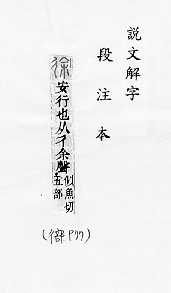 說文解字
段注本
徐 安行也从彳余聲 似魚切 五部